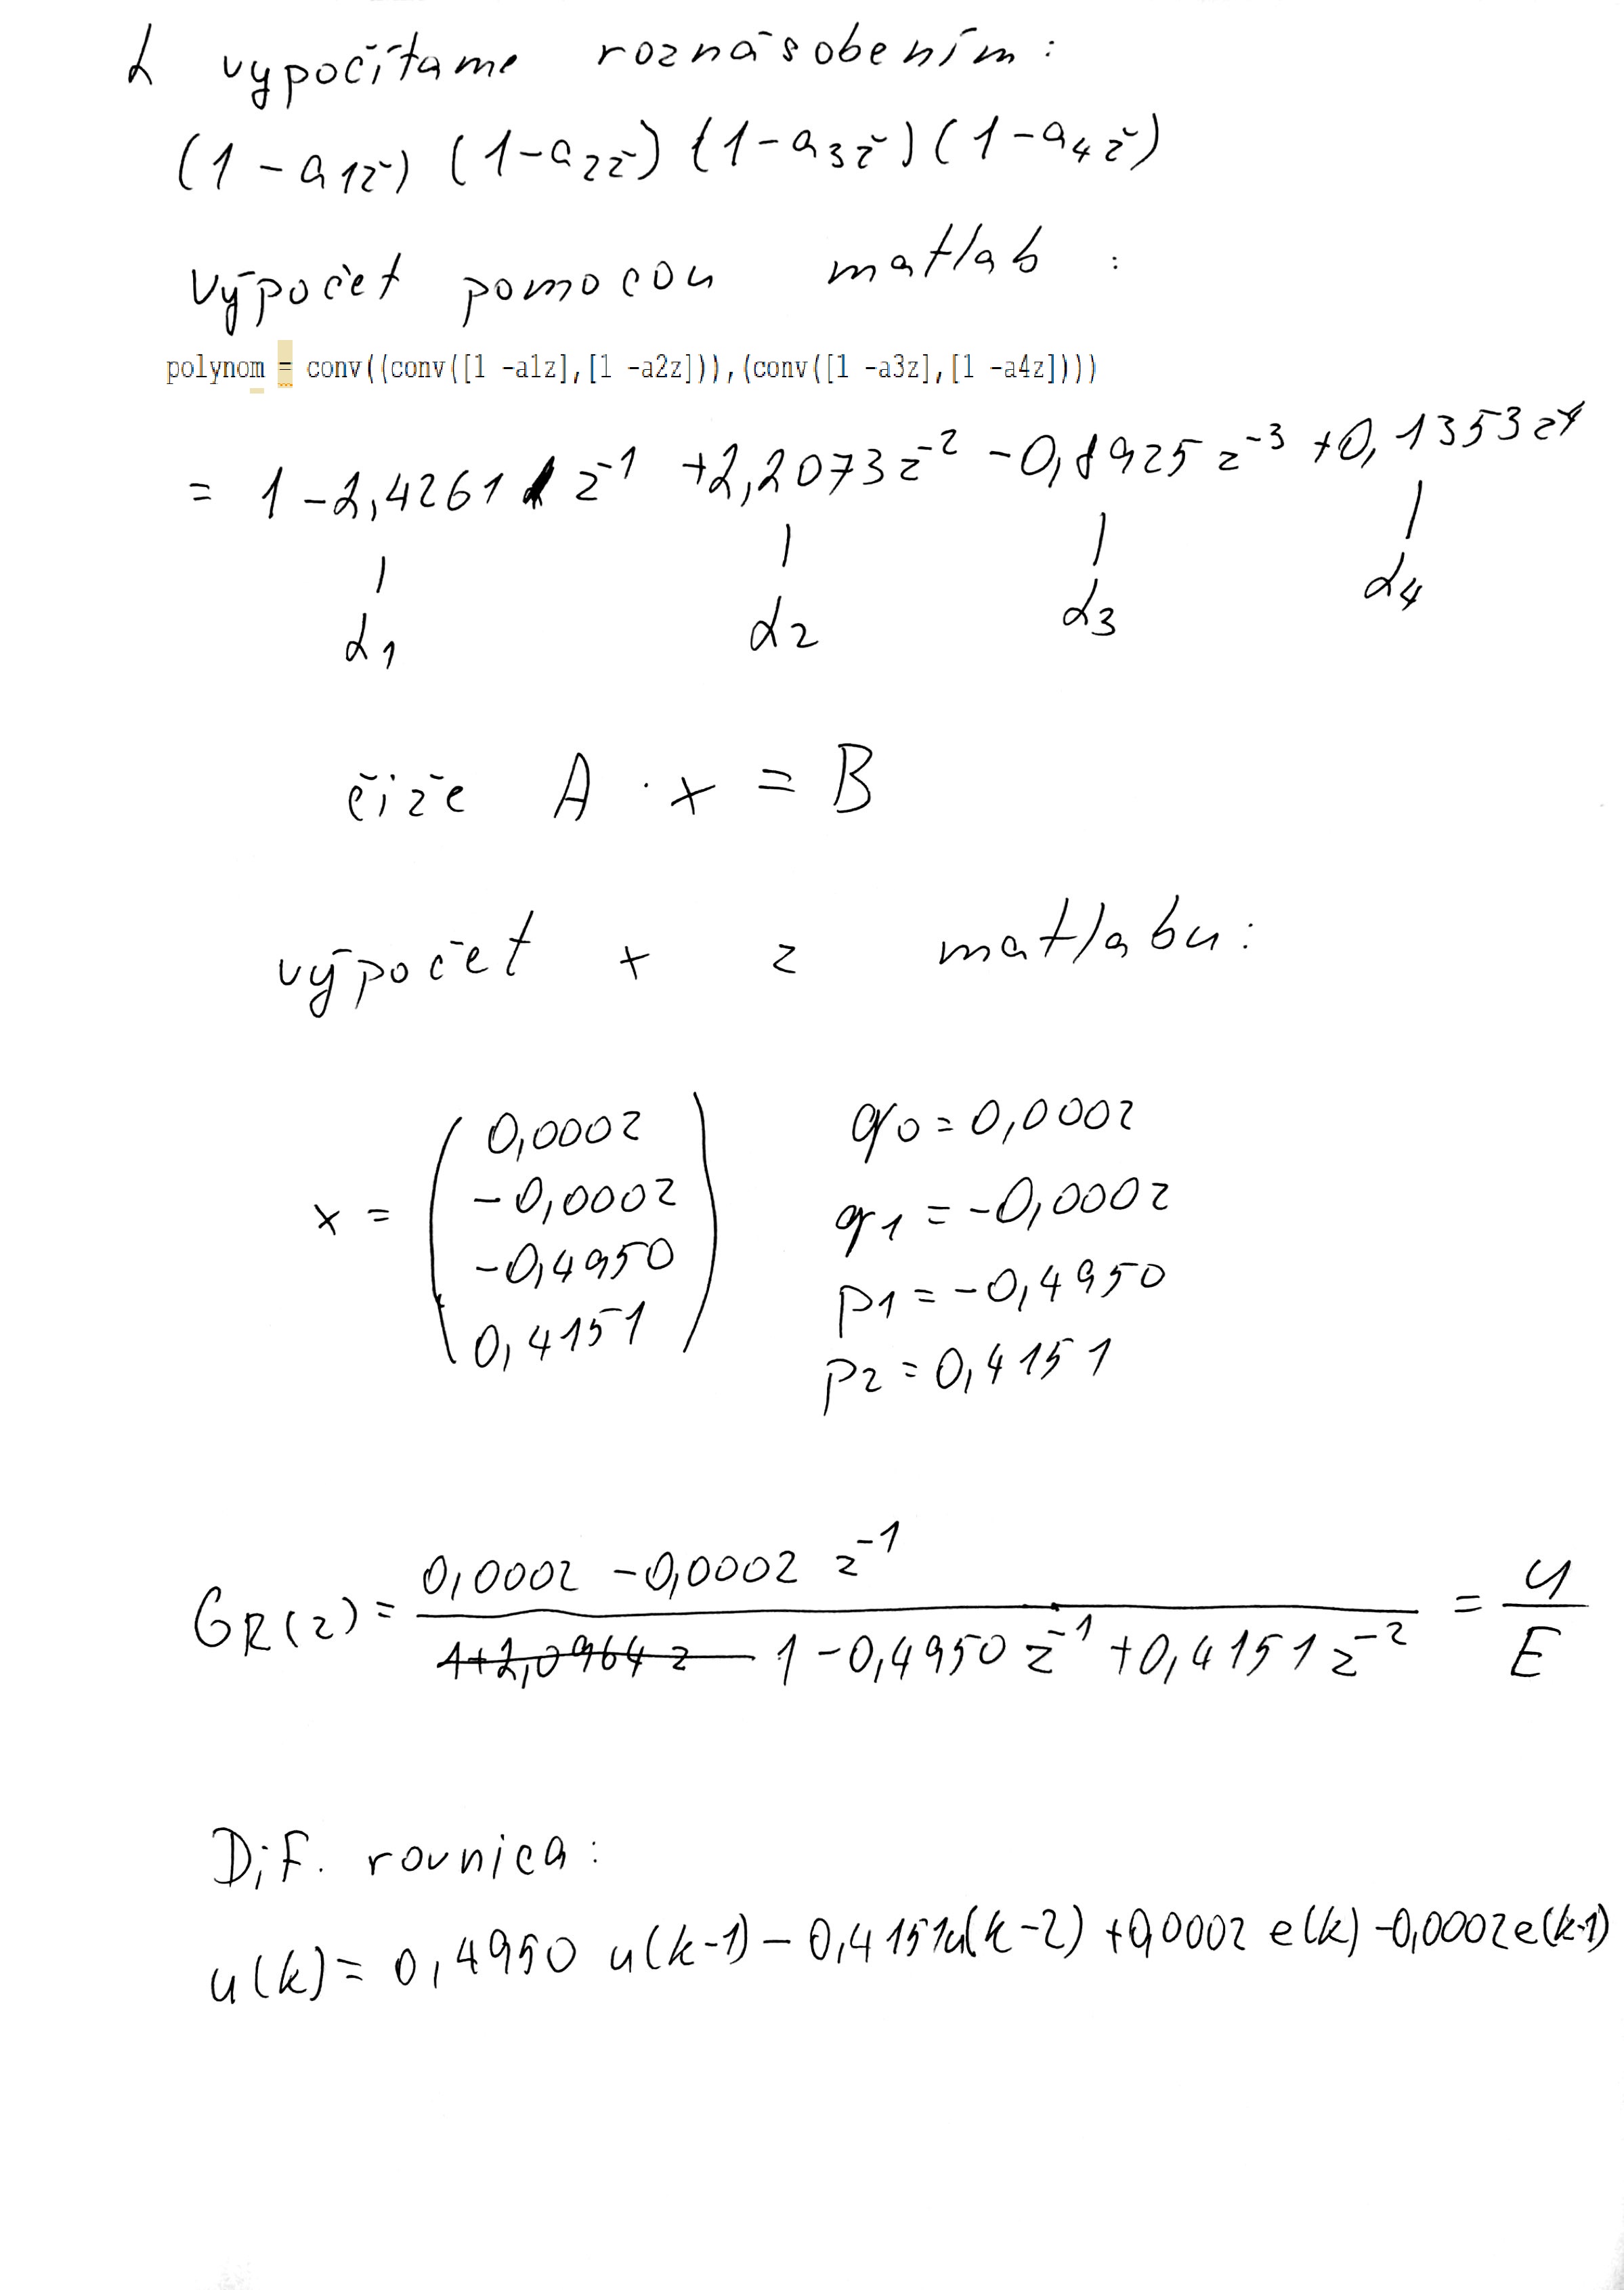 α vypočítame roznásobením:
(1 - a1z) (1 - a2z) (1 - a3z) (1 - a4z)
výpočet pomocou matlab :
polynom = conv((conv([1 -a1z],[1 -a2z])),(conv([1 -a3z],[1 -a4z])))
= 1 - 2,4261 z⁻¹ + 2,2073 z⁻² - 0,8925 z⁻³ + 0,1353 z⁴
α1 α2 α3 α4
čiže A · x = B
výpočet x z matlabu:
x = ( 0,0002
-0,0002
-0,4950
0,4151 )
q0 = 0,0002
q1 = -0,0002
p1 = -0,4950
p2 = 0,4151
GR(z) = (0,0002 - 0,0002 z⁻¹) / (1 - 0,4950 z⁻¹ + 0,4151 z⁻²) = U / E
Dif. rovnica:
u(k) = 0,4950 u(k-1) - 0,4151u(k-2) + 0,0002 e(k) - 0,0002e(k-1)